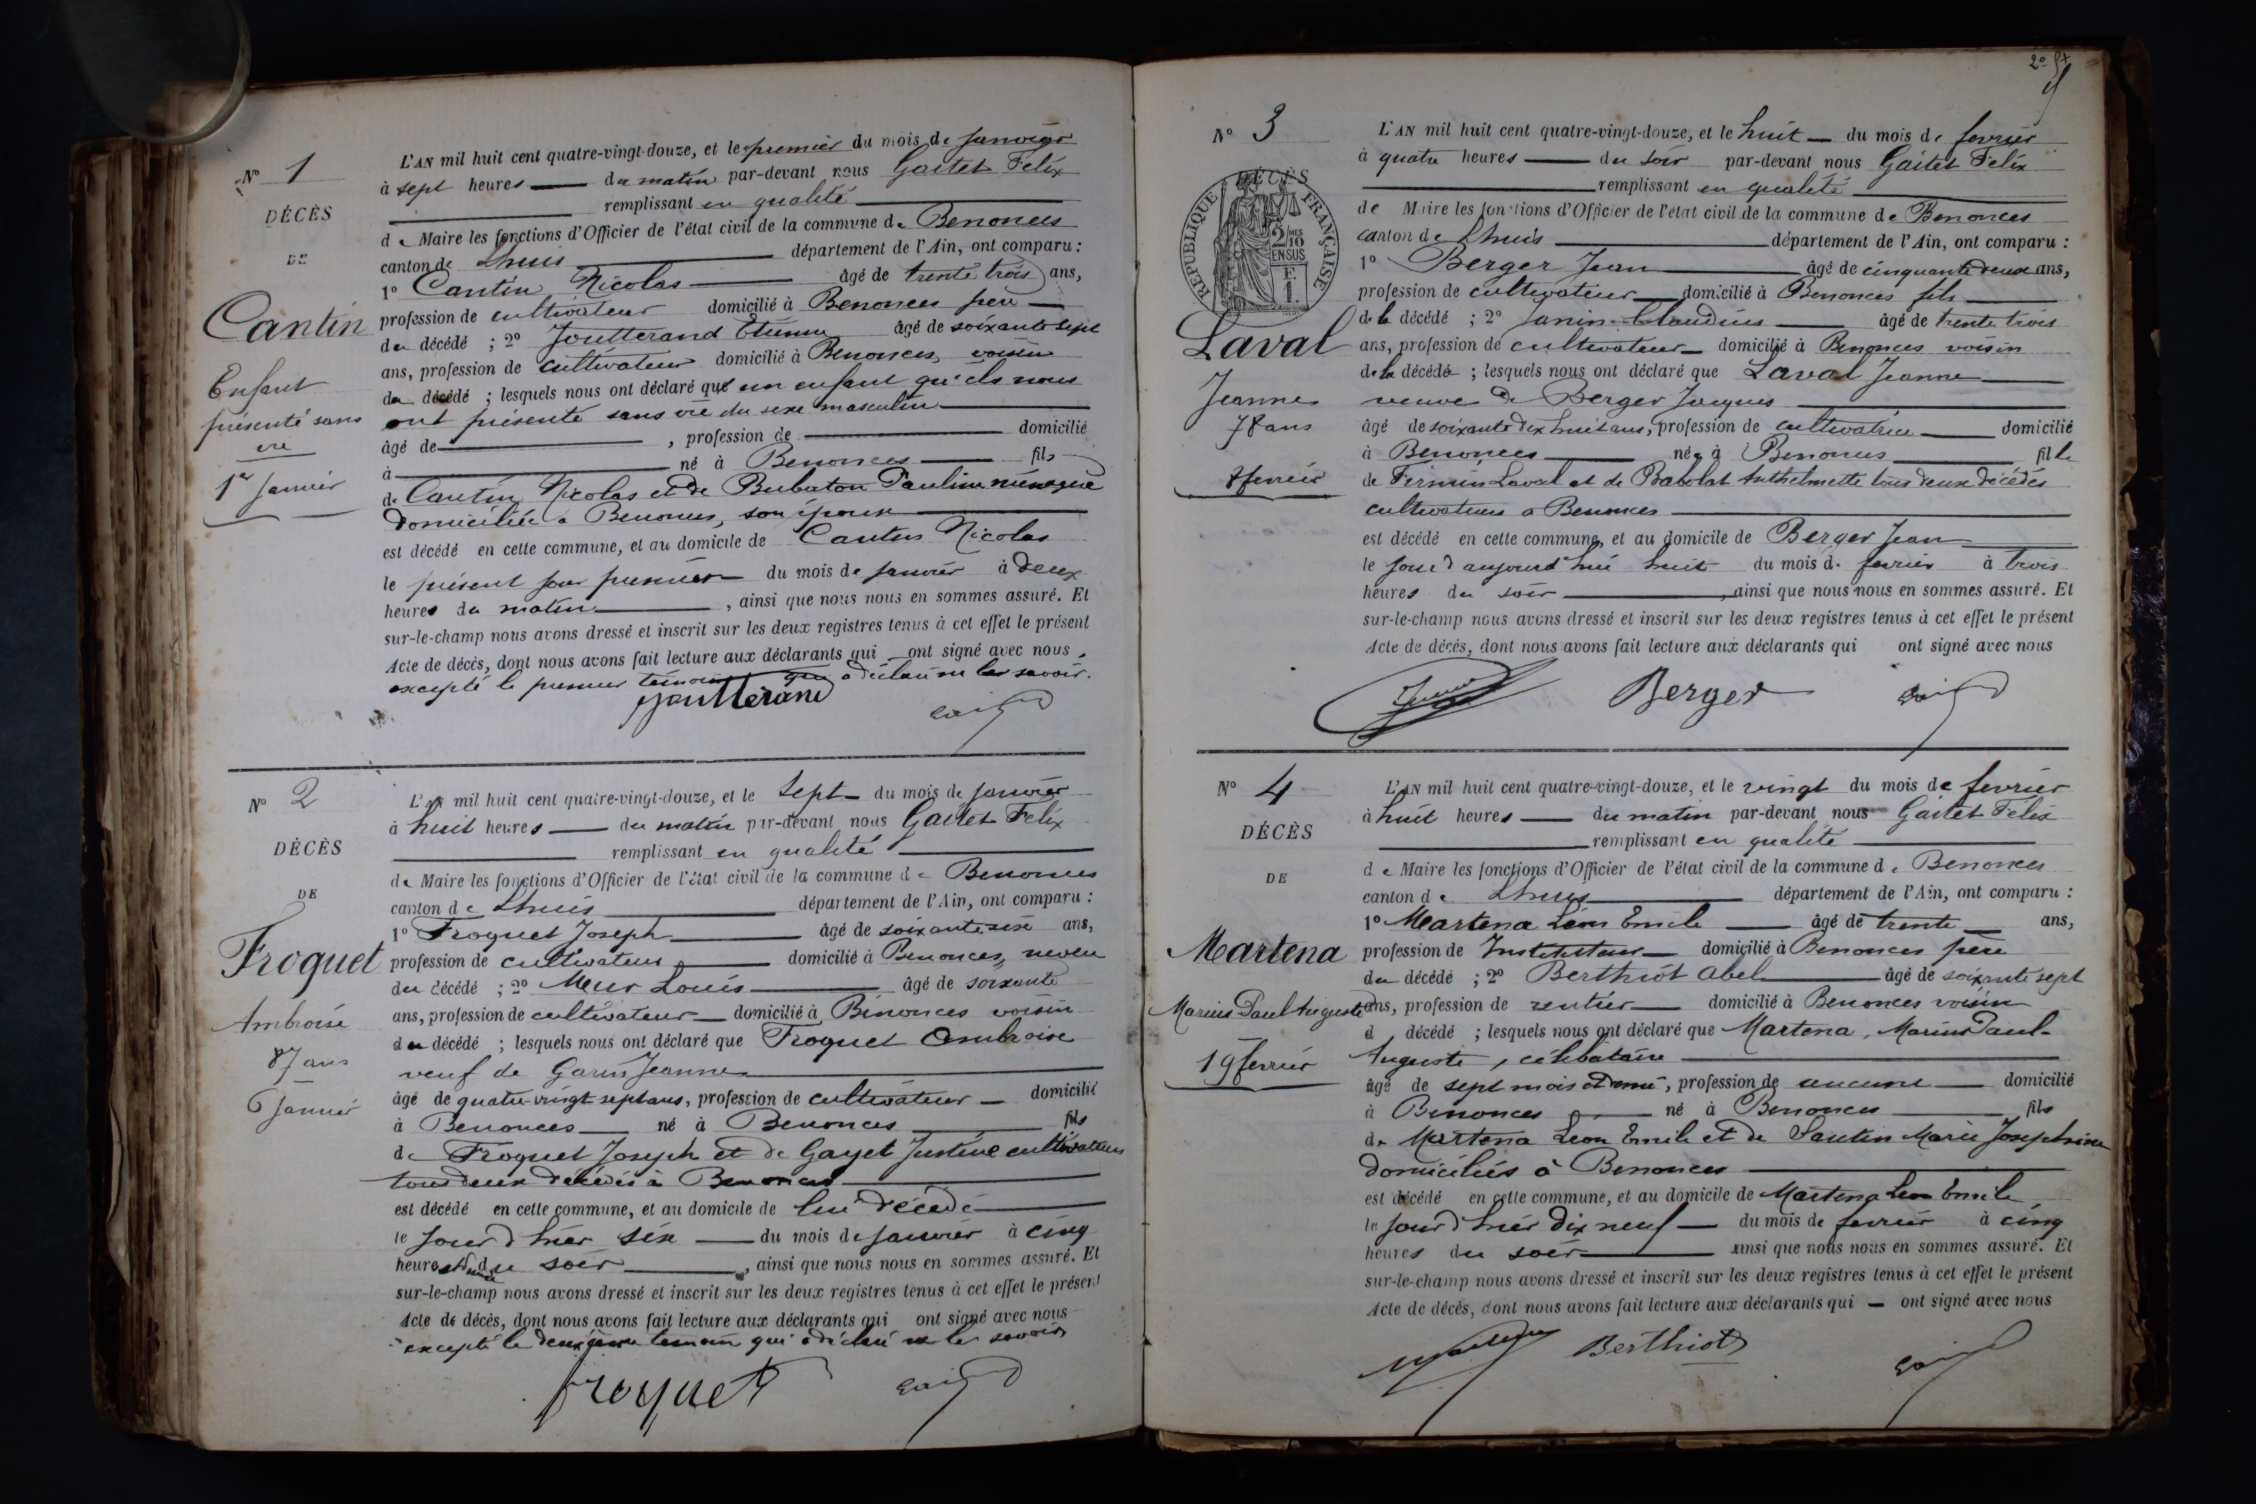 N° 1
DÉCÈS
DE
Cantin
Enfant
présenté sans
vie
1er Janvier
L'AN mil huit cent quatre-vingt-douze, et le premier du mois de Janvier
à sept heures du matin par-devant nous Gaitet Félix
remplissant en qualité
de Maire les fonctions d'Officier de l'état civil de la commune de Benonces
canton de Lhuis département de l'Ain, ont comparu :
1° Cantin Nicolas âgé de trente trois ans,
profession de cultivateur domicilié à Benonces père
du décédé ; 2° Joutterand Etienne âgé de soixante sept
ans, profession de cultivateur domicilié à Benonces, voisin
du décédé ; lesquels nous ont déclaré que un enfant qu'ils nous
ont présenté sans vie du sexe masculin
âgé de , profession de domicilié
à né à Benonces fils
de Cantin Nicolas et de Bubaton Pauline ménagère
domiciliée à Benonces, son épouse
est décédé en cette commune, et au domicile de Cantin Nicolas
le présent jour premier du mois de Janvier à deux
heures du matin , ainsi que nous nous en sommes assuré. Et
sur-le-champ nous avons dressé et inscrit sur les deux registres tenus à cet effet le présent
Acte de décès, dont nous avons fait lecture aux déclarants qui ont signé avec nous,
excepté le premier témoin qui a déclaré ne le savoir.
Joutterand
N° 2
DÉCÈS
DE
Froquet
Ambroise
87 ans
6 Janvier
L'AN mil huit cent quatre-vingt-douze, et le Sept du mois de Janvier
à huit heures du matin par-devant nous Gaitet Félix
remplissant en qualité
de Maire les fonctions d'Officier de l'état civil de la commune de Benonces
canton de Lhuis département de l'Ain, ont comparu :
1° Froquet Joseph âgé de soixante six ans,
profession de cultivateur domicilié à Benonces, neveu
du décédé ; 2° Meur Louis âgé de soixante
ans, profession de cultivateur domicilié à Benonces voisin
du décédé ; lesquels nous ont déclaré que Froquet Ambroise
veuf de Garin Jeanne
âgé de quatre-vingt sept ans, profession de cultivateur domicilié
à Benonces né à Benonces fils
de Froquet Joseph et de Gayet Justine cultivateurs
tous deux décédés à Benonces
est décédé en cette commune, et au domicile de lui décédé
le jour d'hier six du mois de Janvier à cinq
heures du soir , ainsi que nous nous en sommes assuré. Et
sur-le-champ nous avons dressé et inscrit sur les deux registres tenus à cet effet le présent
Acte de décès, dont nous avons fait lecture aux déclarants qui ont signé avec nous
excepté le deuxième temoin qui a déclaré ne le savoir
Froquet
N° 3
RÉPUBLIQUE FRANÇAISE
DÉCÈS
2/10 EN SUS
Laval
Jeanne
78 ans
8 fevrier
L'AN mil huit cent quatre-vingt-douze, et le huit du mois de fevrier
à quatre heures du soir par-devant nous Gaitet Félix
remplissant en qualité
de Maire les fonctions d'Officier de l'état civil de la commune de Benonces
canton de Lhuis département de l'Ain, ont comparu :
1° Berger Jean âgé de cinquante deux ans,
profession de cultivateur domicilié à Benonces fils
de la décédé ; 2° Janin Claudius âgé de trente trois
ans, profession de cultivateur domicilié à Benonces voisin
de la décédé ; lesquels nous ont déclaré que Laval Jeanne
veuve de Berger Jacques
âgé de soixante dix huit ans, profession de cultivatrice domicilié
à Benonces née à Benonces fille
de Firmin Laval et de Babolat Anthelmette tous deux décédés
cultivateurs à Benonces
est décédé en cette commune, et au domicile de Berger Jean
le jour d'aujourd'hui huit du mois de fevrier à trois
heures du soir , ainsi que nous nous en sommes assuré. Et
sur-le-champ nous avons dressé et inscrit sur les deux registres tenus à cet effet le présent
Acte de décès, dont nous avons fait lecture aux déclarants qui ont signé avec nous
Berger
N° 4
DÉCÈS
DE
Martena
Marius Paul Auguste
19 fevrier
L'AN mil huit cent quatre-vingt-douze, et le vingt du mois de fevrier
à huit heures du matin par-devant nous Gaitet Félix
remplissant en qualité
de Maire les fonctions d'Officier de l'état civil de la commune de Benonces
canton de Lhuis département de l'Ain, ont comparu :
1° Martena Léon Emile âgé de trente ans,
profession de Instituteur domicilié à Benonces père
du décédé ; 2° Berthiot Abel âgé de soixante sept
ans, profession de rentier domicilié à Benonces voisin
d décédé ; lesquels nous ont déclaré que Martena, Marius Paul
Auguste, célibataire
âgé de sept mois et demi, profession de aucune domicilié
à Benonces né à Benonces fils
de Martena Léon Emile et de Santin Marie Josephine
domiciliés à Benonces
est décédé en cette commune, et au domicile de Martena Léon Emile
le jour d'hier dix neuf du mois de fevrier à cinq
heures du soir ainsi que nous nous en sommes assuré. Et
sur-le-champ nous avons dressé et inscrit sur les deux registres tenus à cet effet le présent
Acte de décès, dont nous avons fait lecture aux déclarants qui ont signé avec nous
Berthiot